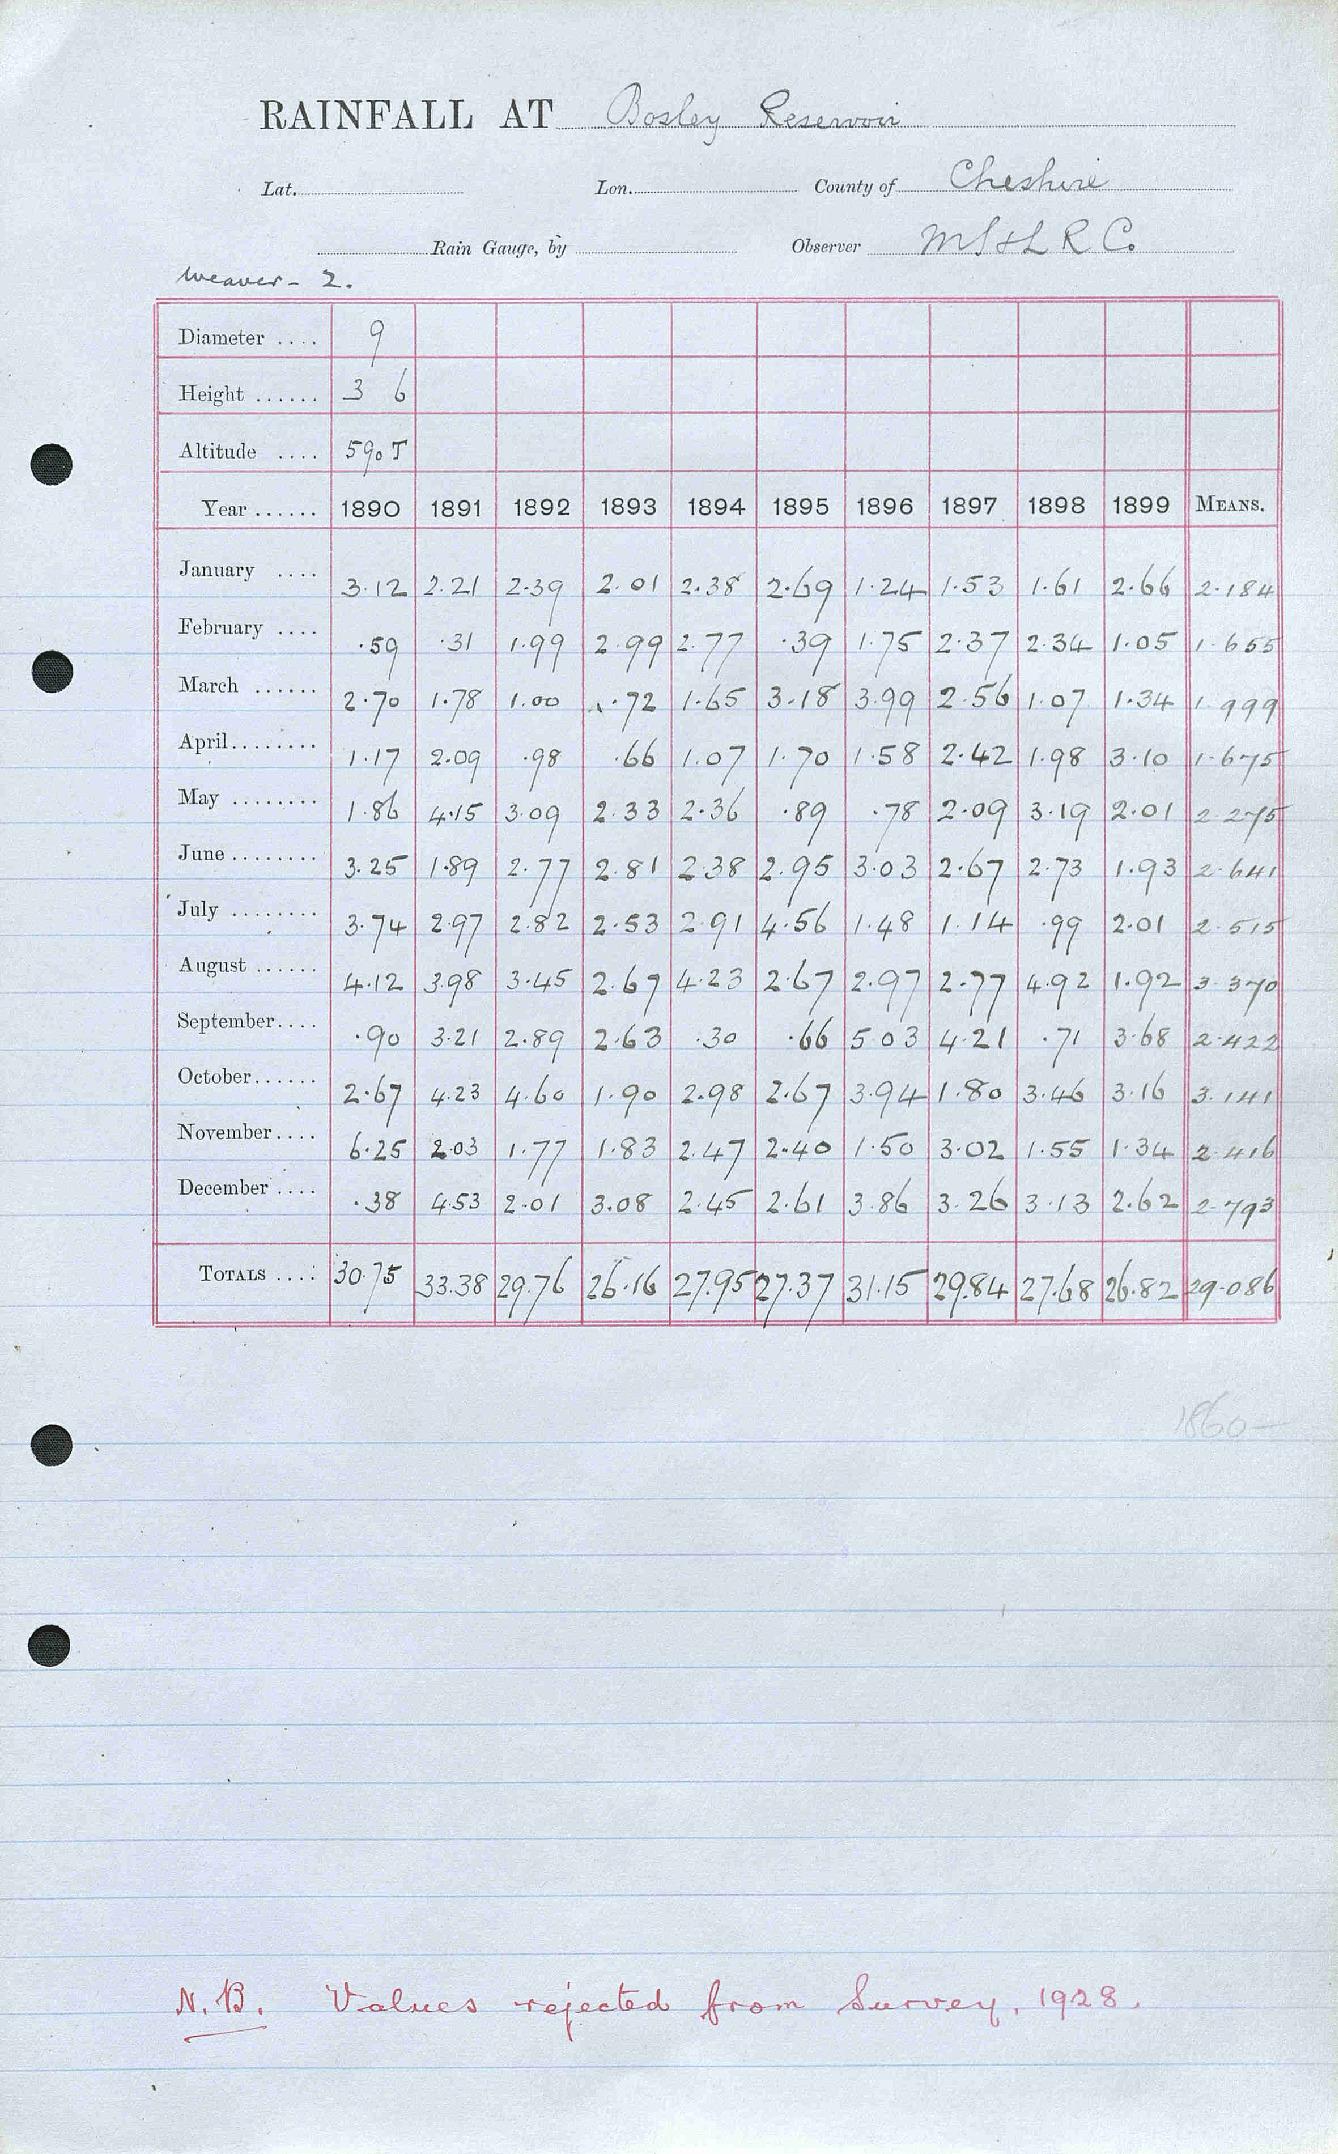 RAINFALL AT Bosley Reservoir
Lat. Lon. County of Cheshire
Rain Gauge, by Observer M S & L R Co.
Weaver - 2.
Diameter .... 9
Height ...... 3 6
Altitude .... 590 T
Year ...... 1890 1891 1892 1893 1894 1895 1896 1897 1898 1899 MEANS.
January .... 3.12 2.21 2.39 2.01 2.38 2.69 1.24 1.53 1.61 2.66 2.184
February .... .59 .31 1.99 2.99 2.77 .39 1.75 2.37 2.34 1.05 1.655
March ...... 2.70 1.78 1.00 .72 1.65 3.18 3.99 2.56 1.07 1.34 1.999
April........ 1.17 2.09 .98 .66 1.07 1.70 1.58 2.42 1.98 3.10 1.675
May ........ 1.86 4.15 3.09 2.33 2.36 .89 .78 2.09 3.19 2.01 2.275
June ........ 3.25 1.89 2.77 2.81 2.38 2.95 3.03 2.67 2.73 1.93 2.641
July ........ 3.74 2.97 2.82 2.53 2.91 4.56 1.48 1.14 .99 2.01 2.515
August ...... 4.12 3.98 3.45 2.67 4.23 2.67 2.97 2.77 4.92 1.92 3.370
September.... .90 3.21 2.89 2.63 .30 .66 5.03 4.21 .71 3.68 2.422
October...... 2.67 4.23 4.60 1.90 2.98 2.67 3.94 1.80 3.46 3.16 3.141
November.... 6.25 2.03 1.77 1.83 2.47 2.40 1.50 3.02 1.55 1.34 2.416
December .... .38 4.53 2.01 3.08 2.45 2.61 3.86 3.26 3.13 2.62 2.793
TOTALS .... 30.75 33.38 29.76 26.16 27.95 27.37 31.15 29.84 27.68 26.82 29.086
1860-
N.B. Values rejected from Survey, 1928.